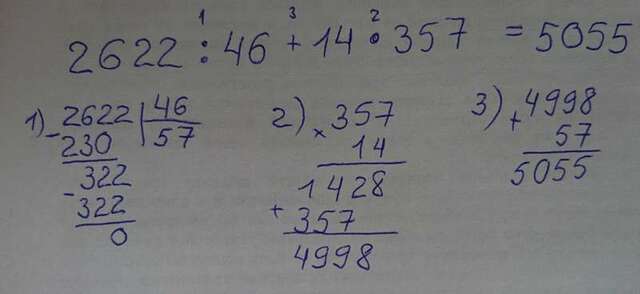 1 3 2
2622 : 46 + 14 • 357 = 5055
1) - 2622 | 46
230 | 57
- 322
322
0
2) × 357
14
1428
+ 357
4998
3) + 4998
57
5055